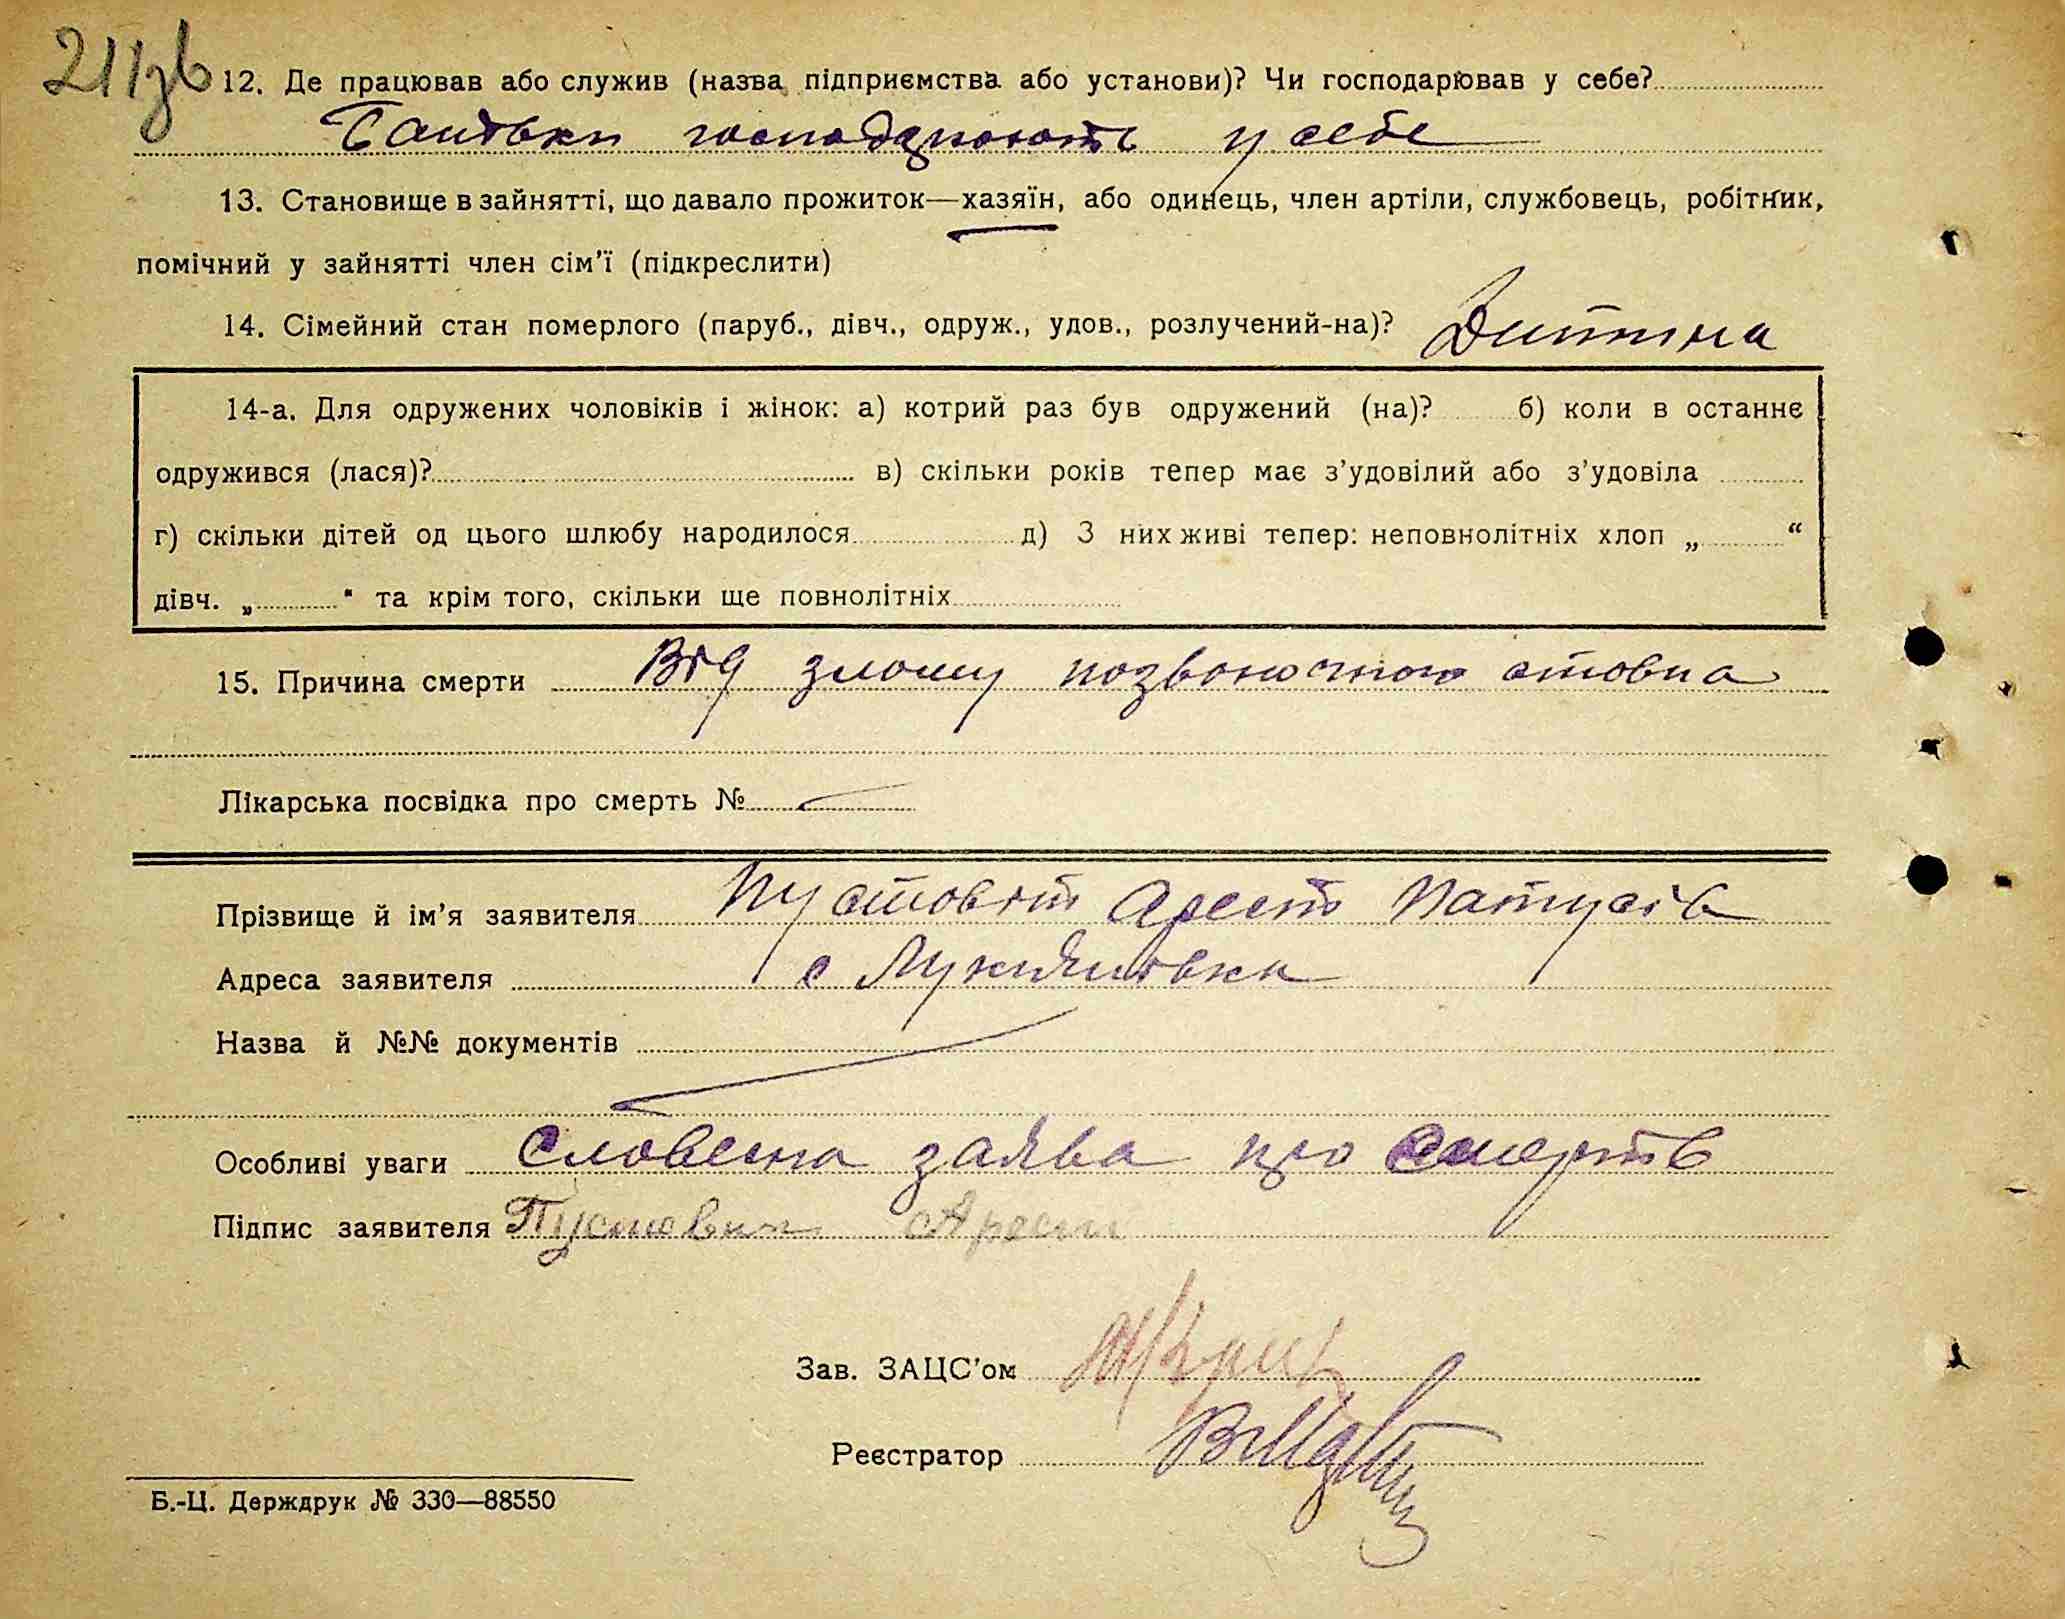 21зв
12. Де працював або служив (назва підприємства або установи)? Чи господарював у себе?
Батьки господарюють у себе
13. Становище в зайнятті, що давало прожиток—хазяїн, або одинець, член артіли, службовець, робітник,
помічний у зайнятті член сім’ї (підкреслити)
14. Сімейний стан померлого (паруб., дівч., одруж., удов., розлучений-на)? Дитина
14-а. Для одружених чоловіків і жінок: а) котрий раз був одружений (на)? б) коли в останнє
одружився (лася)? в) скільки років тепер має з’удовілий або з’удовіла
г) скільки дітей од цього шлюбу народилося д) З них живі тепер: неповнолітніх хлоп „ “
дівч. „ “ та крім того, скільки ще повнолітніх
15. Причина смерти Від злому позвоночного стовпа
Лікарська посвідка про смерть №
Прізвище й ім’я заявителя Пустовіт Арест
Адреса заявителя с Лукянівка
Назва й №№ документів
Особливі уваги Словесна заява про смерть
Підпис заявителя Пустовит Арест
Зав. ЗАЦС’ом
Реєстратор
Б.-Ц. Держдрук № 330—88550